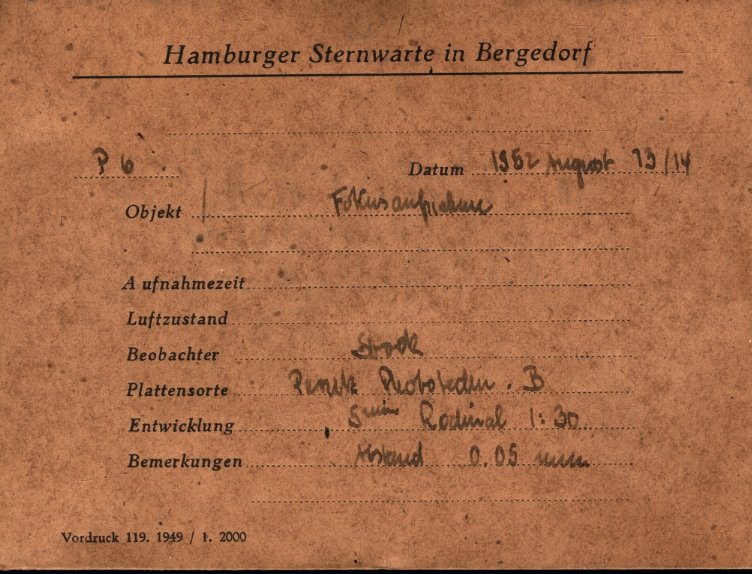 Hamburger Sternwarte in Bergedorf
P 6
Datum 1952 August 13/14
Objekt Fokusaufnahme
Aufnahmezeit
Luftzustand
Beobachter Stock
Plattensorte Perutz B
Entwicklung 5 min Rodinal 1:30
Bemerkungen Abstand 0.05 mm
Vordruck 119. 1949 / 1. 2000